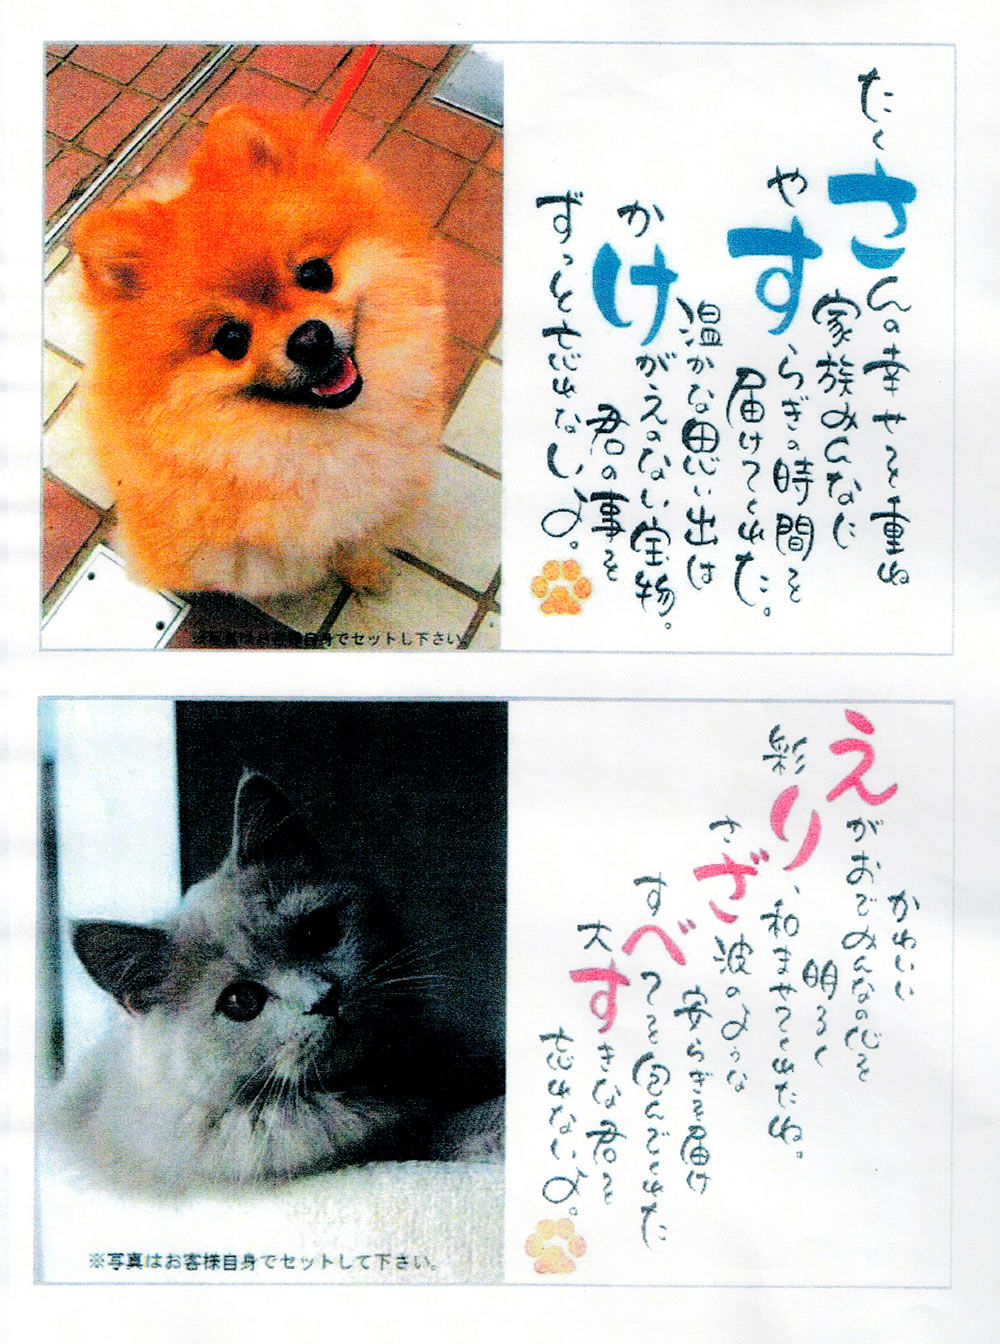 たくさんの幸せを重ね
家族みんなに
やすらぎの時間を
届けてくれた。
温かな思い出は
かけがえのない宝物。
君の事を
ずっと忘れないよ。
※写真はお客様自身でセットし下さい。
かわいい
えがおでみんなの心を
明るく
彩り、和ませてくれたね。
さざ波のような
安らぎを届け
すべてを包んでくれた
大すきな君を
忘れないよ。
※写真はお客様自身でセットして下さい。